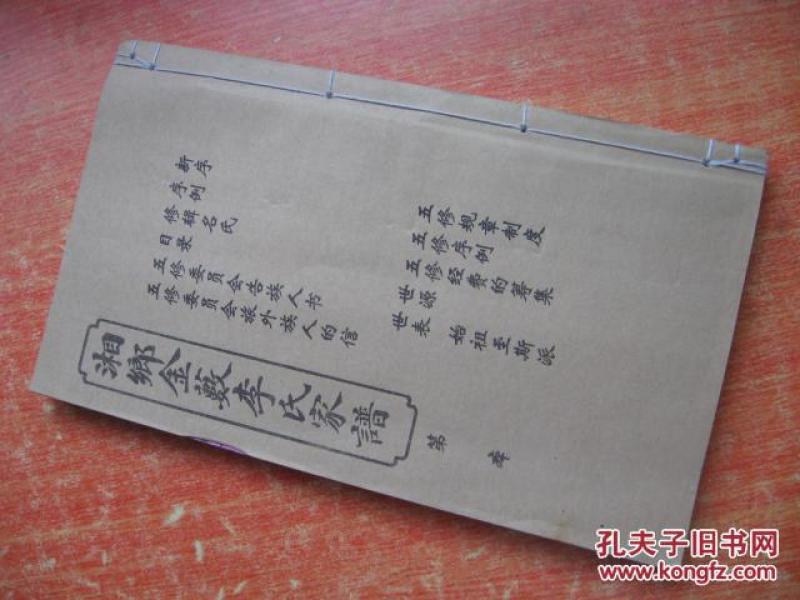 新序
序例
修辑名氏
目录
五修委员会告族人书
五修委员会旅外族人的信
五修规章制度
五修序例
五修经费的筹集
世源
世表 始祖至斯派
湘鄉金藪李氏家譜
第
孔夫子旧书网
www.kongfz.com